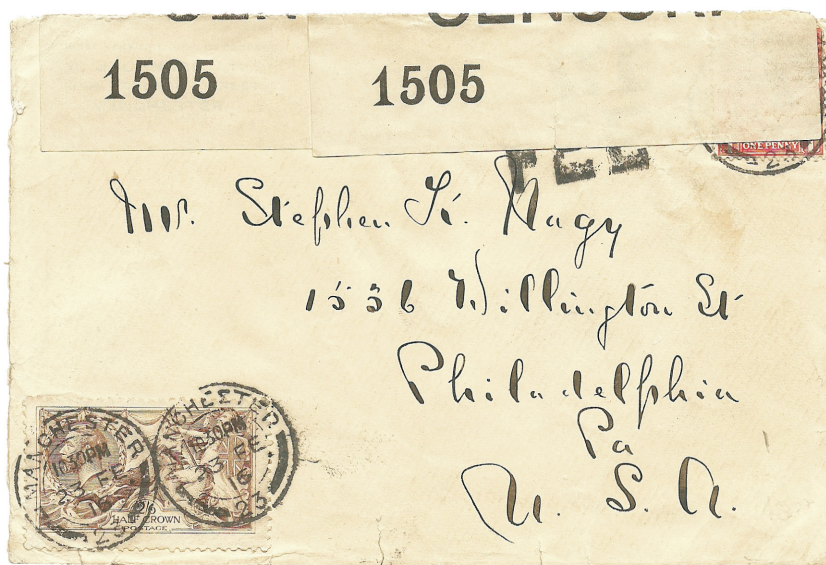 1505
1505
ONE PENNY
FEE
Mr. Stephen K. Nagy
1536 Willington St
Philadelphia
Pa
U. S. A.
MANCHESTER
10.30PM
23 FE
16
23
MANCHESTER
10.30PM
23 FE
16
23
2/6
HALF CROWN
POSTAGE